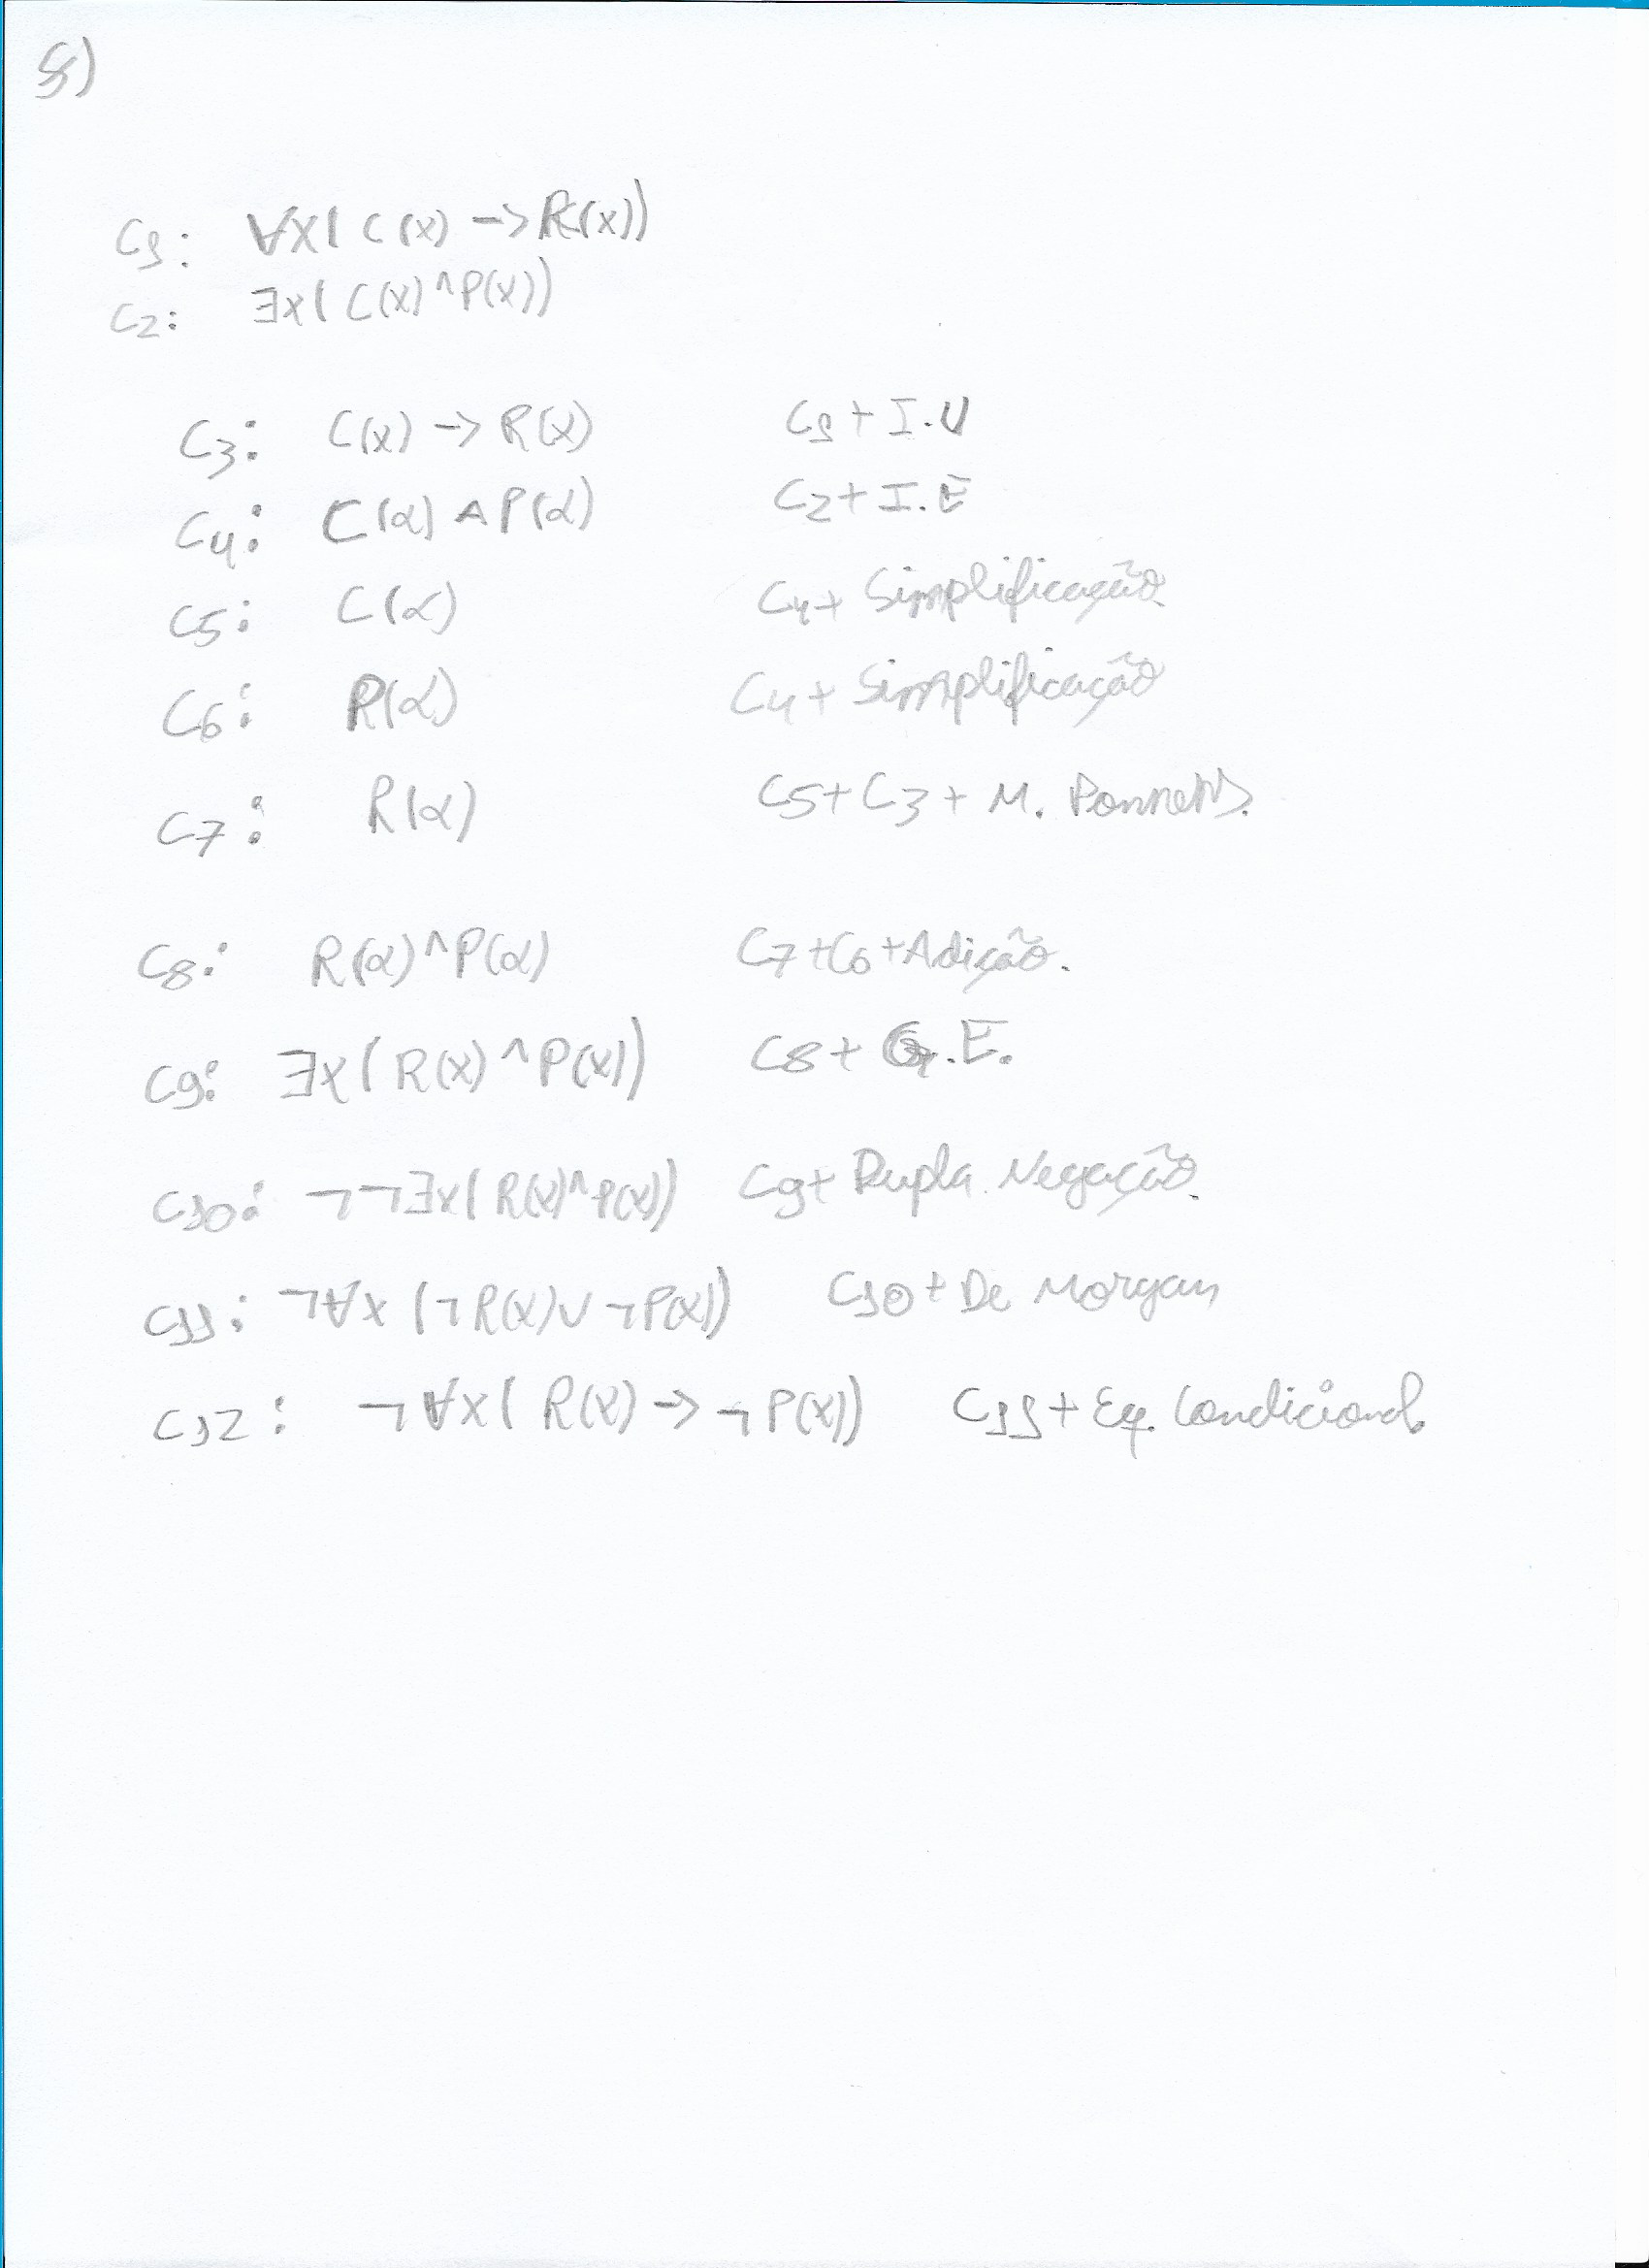 1)
C1: ∀x(C(x) -> R(x))
C2: ∃x(C(x)^P(x))
C3: C(x) -> R(x) C1 + I.U
C4: C(α) ^ P(α) C2 + I.E
C5: C(α) C4 + Simplificação.
C6: P(α) C4 + Simplificação
C7: R(α) C5 + C3 + M.
C8: R(α)^P(α) C7 + C6 + Adição.
C9: ∃x(R(x)^P(x)) C8 + G.E.
C10: ¬¬∃x(R(x)^P(x)) C9 + Dupla Negação.
C11: ¬∀x(¬R(x)∨¬P(x)) C10 + De Morgan
C12: ¬∀x(R(x) -> ¬P(x)) C11 + Eq. Condicional.